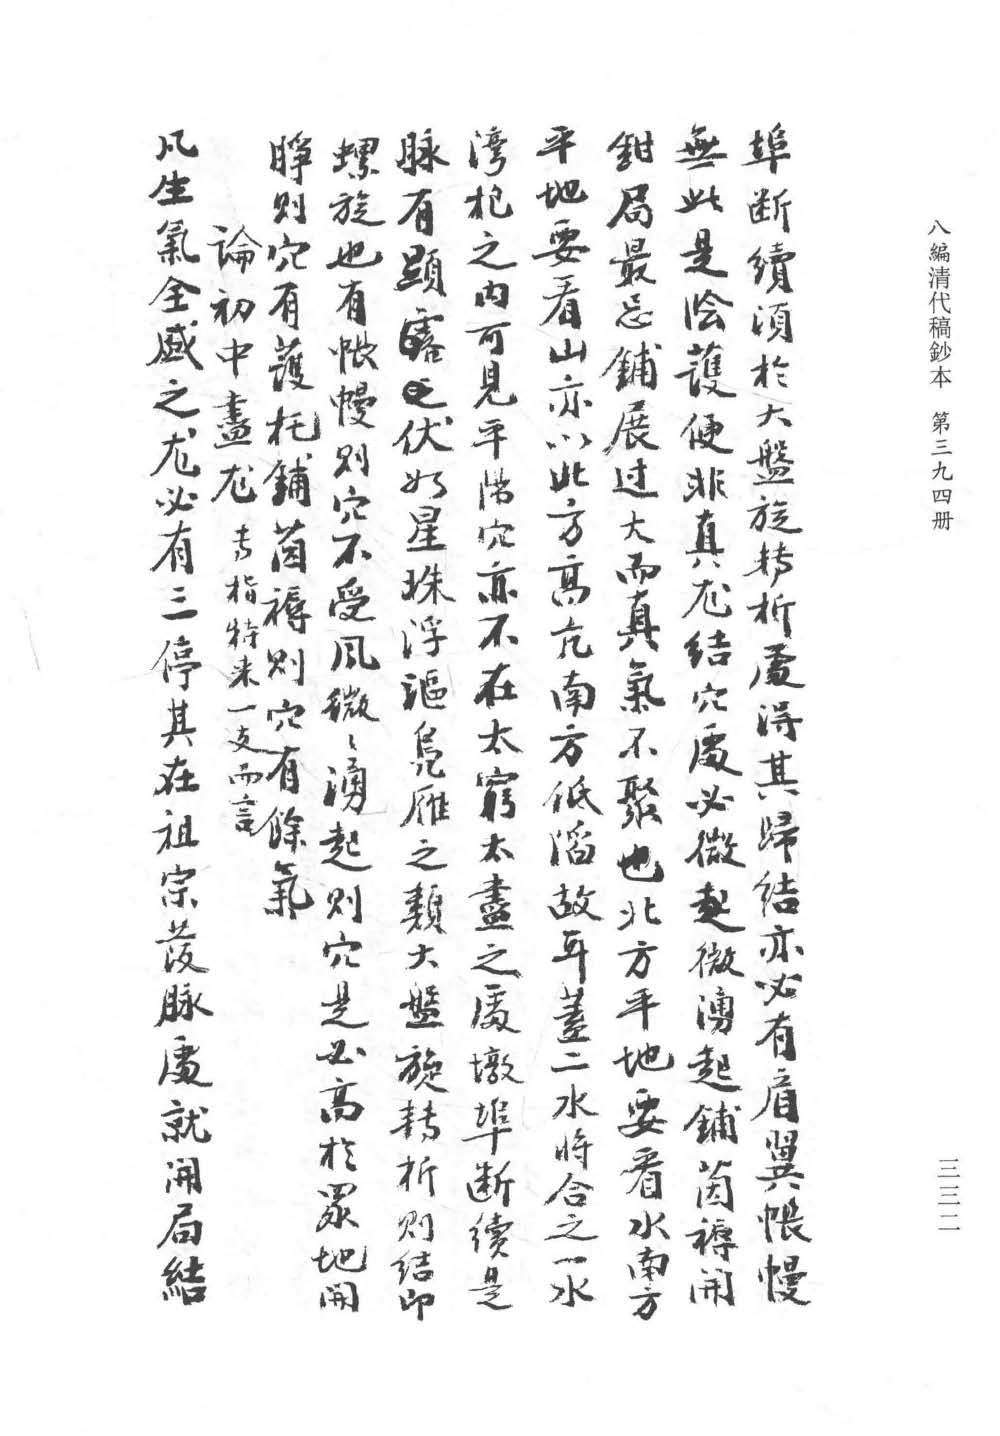 八編清代稿鈔本　第三九四册
三三二
埠断續須於大盤旋轉折處得其歸結亦必有肩翼帳幔
無此是陰護便非真尨結穴處必微起微湧起鋪茵褥開
鉗局最忌鋪展过大而真氣不聚也北方平地要看水南方
平地要看山亦以北方高亢南方低滔故耳蓋二水將合之一水
湾抱之内可見平陽穴亦不在太窮太盡之處墩埠断續是
脉有顕露之伏如星珠浮漚鳧雁之類大盤旋轉折則結印
螺旋也有帳幔則穴不受風微〻湧起則穴是必高於眾地開
睜則穴有護托鋪茵褥則穴有餘氣
論初中盡尨 专指特来一支而言
凡生氣全盛之尨必有三停其在祖宗發脉處就開局結